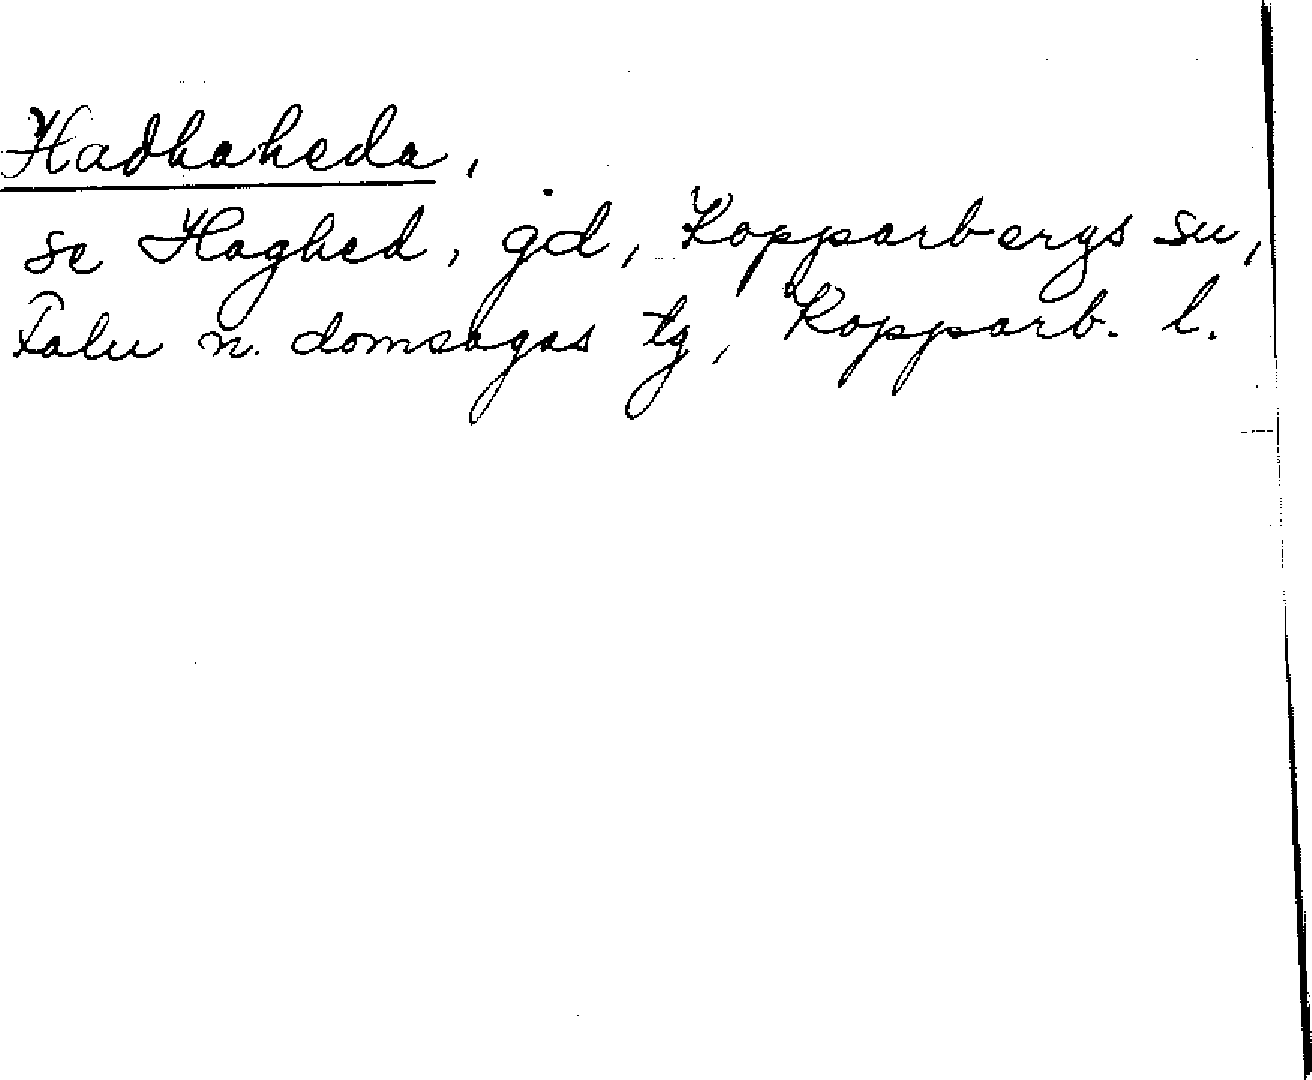 Hadhaheda,
se Haghed, gd, Kopparbergs sn,
Falu n. domsagas tg, Kopparb. l.